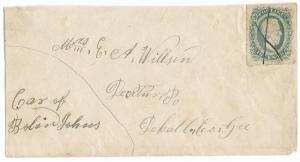 Mrs. E. A. Willson
Decatur
Care of
Bolin Johns
DeKalb, Co. Ga